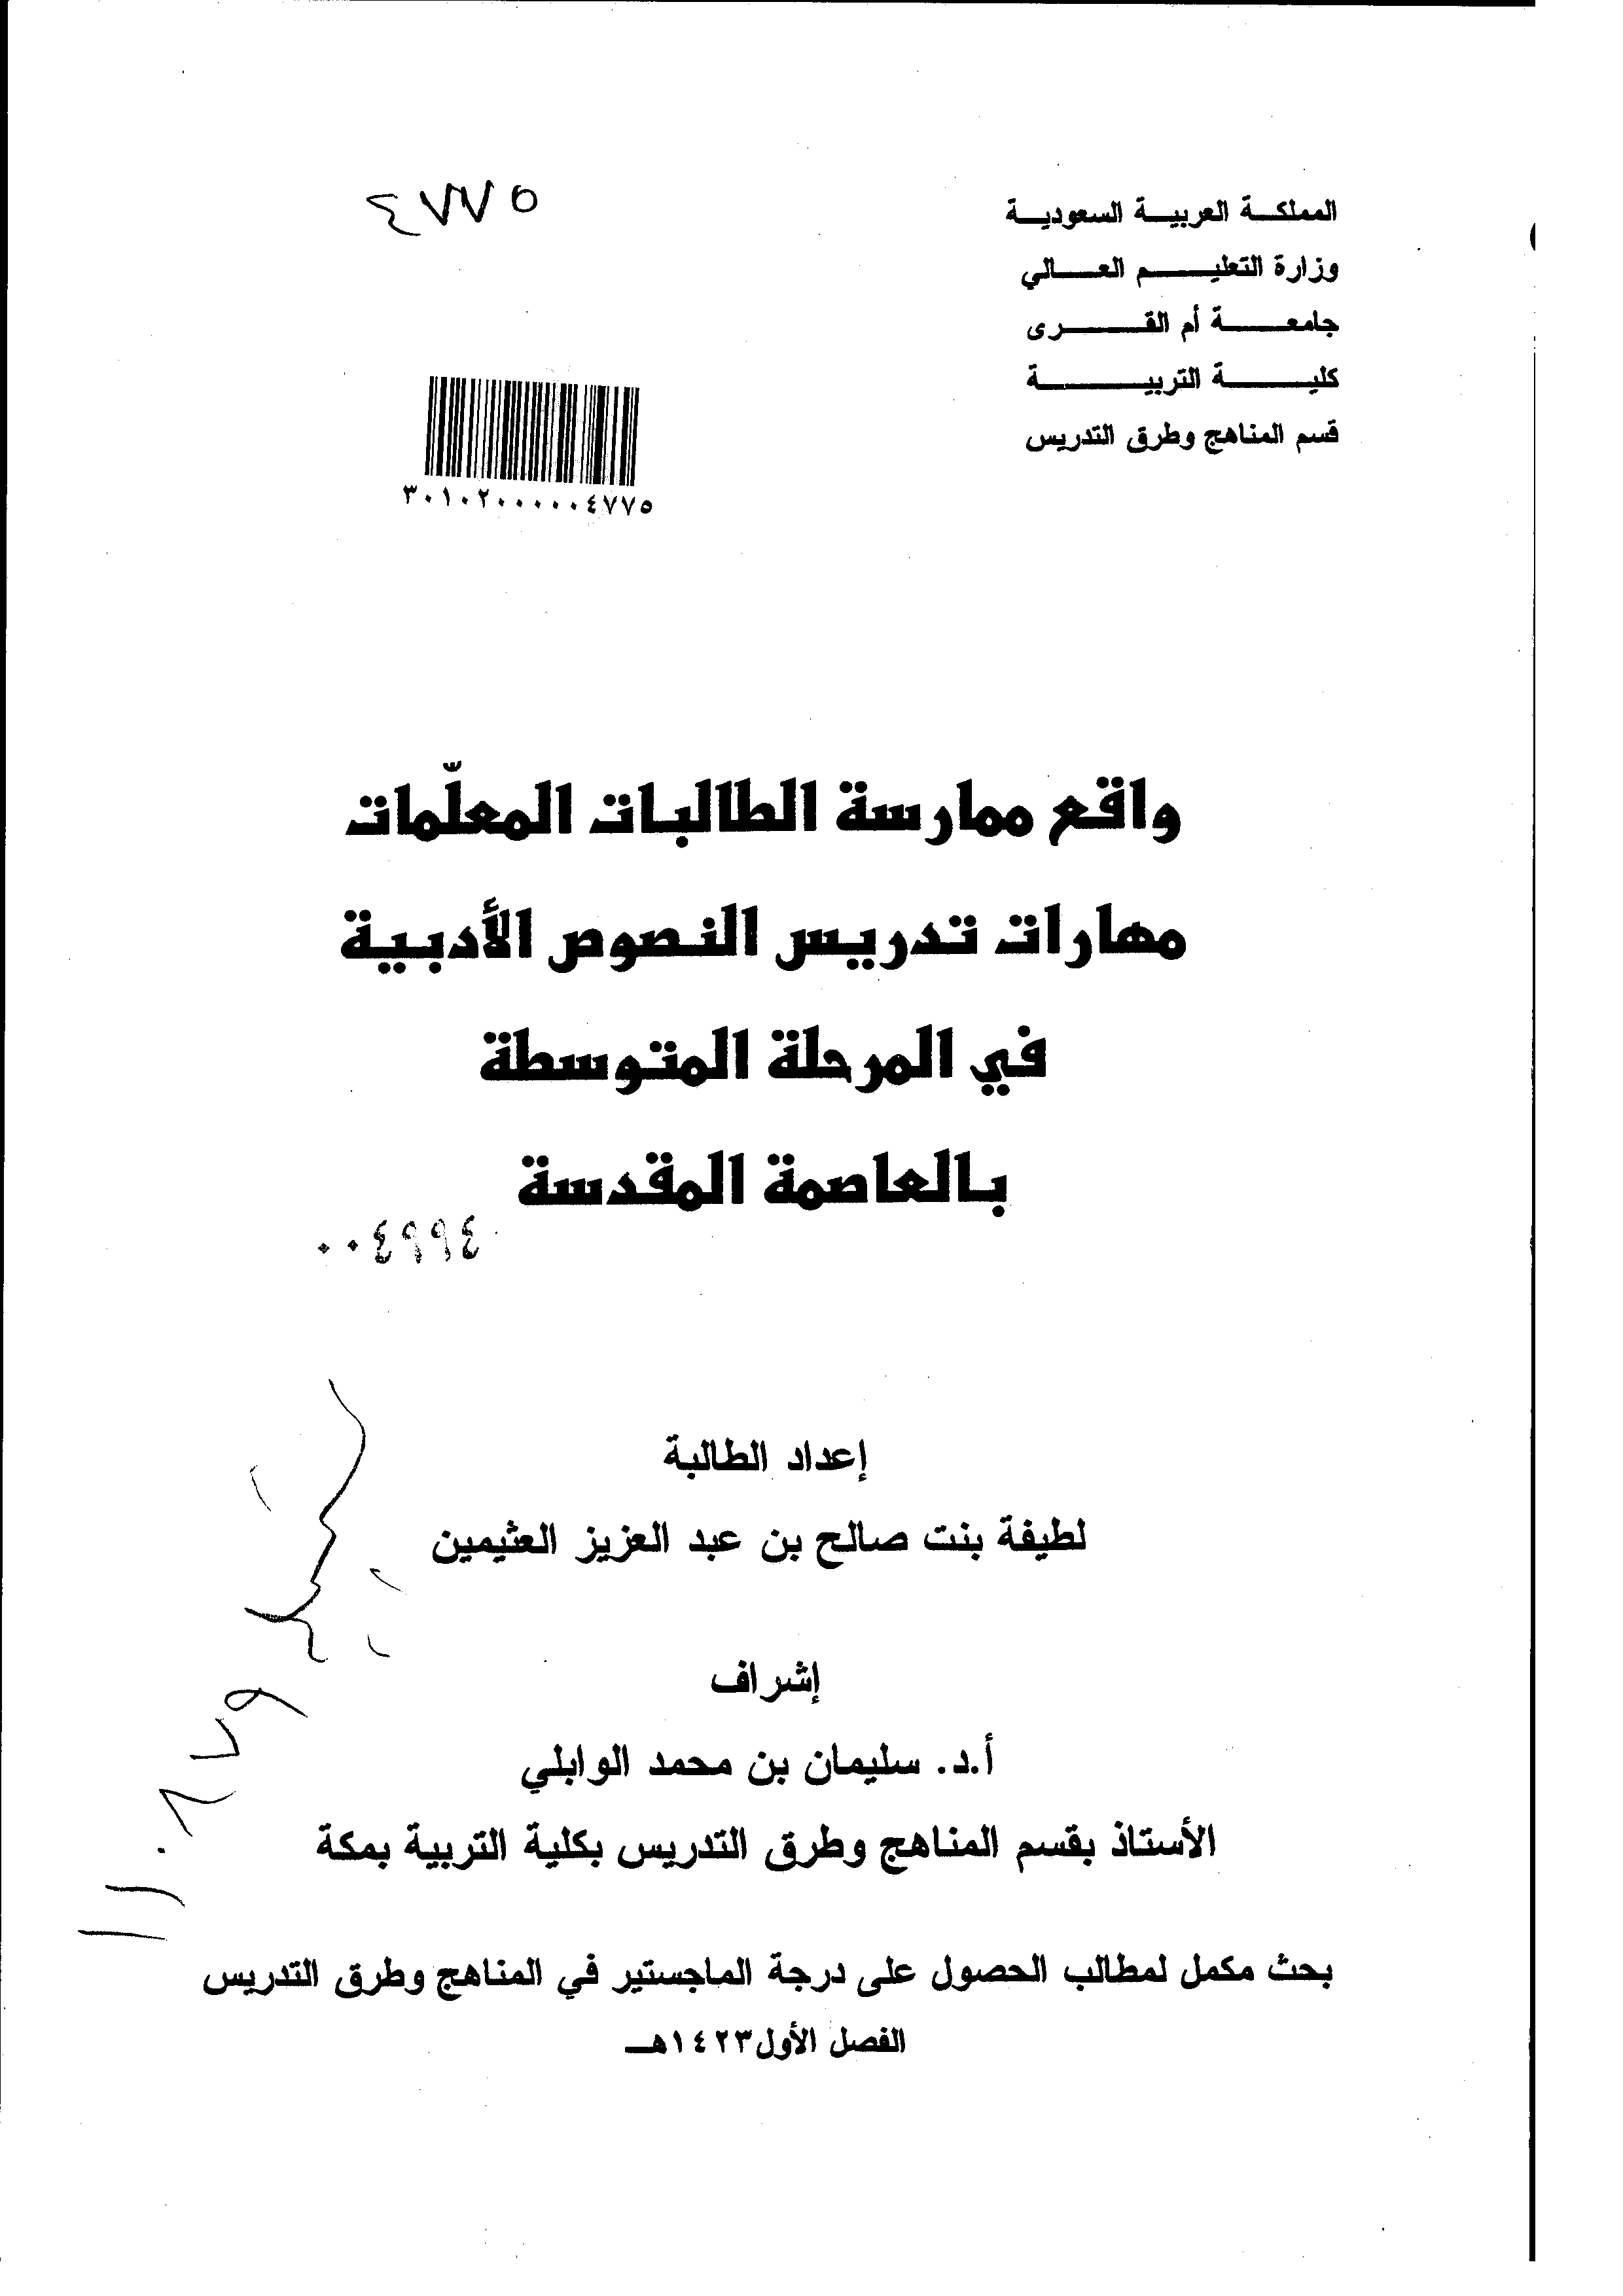 المملكة العربية السعودية
وزارة التعليم العالي
جامعة أم القرى
كلية التربية
قسم المناهج وطرق التدريس
٤٧٧٥
٣٠١٠٢٠٠٠٠٠٤٧٧٥
واقع ممارسة الطالبات المعلّمات
مهارات تدريس النصوص الأدبية
في المرحلة المتوسطة
بالعاصمة المقدسة
٠٠٤٩٩٤
إعداد الطالبة
لطيفة بنت صالح بن عبد العزيز العثيمين
إشراف
أ.د. سليمان بن محمد الوابلي
الأستاذ بقسم المناهج وطرق التدريس بكلية التربية بمكة
بحث مكمل لمطالب الحصول على درجة الماجستير في المناهج وطرق التدريس
الفصل الأول ١٤٢٣هـ